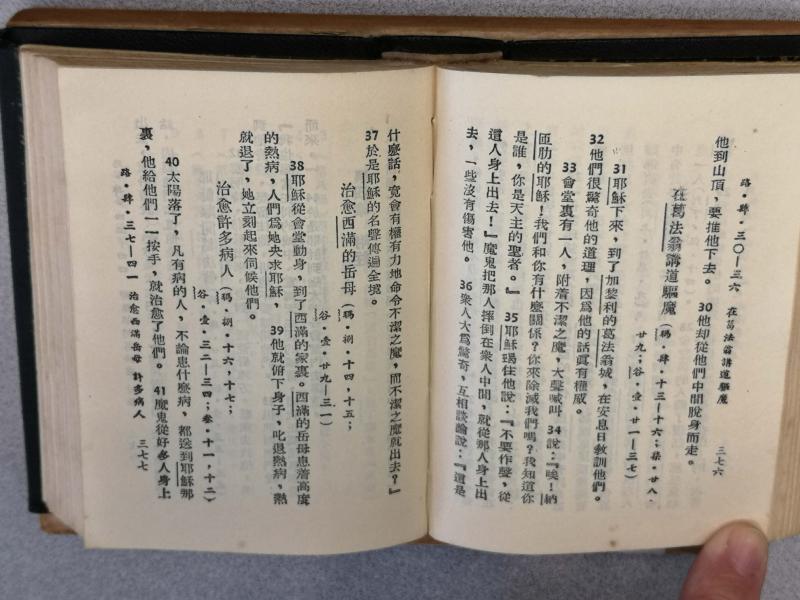 路·肆·三〇—三六　在葛法翁講道驅魔　三七六
他到山頂，要推他下去。　30他却從他們中間脫身而走。
在葛法翁講道驅魔（瑪·肆·十三—十六；柒·廿八·
廿九；谷·壹·廿一—三七）
31耶穌下來，到了加黎利的葛法翁城，在安息日教訓他們。
32他們很驚奇他的道理，因爲他的話眞有權威。
33會堂裏有一人，附着不潔之魔，大聲喊叫　34說：『唉！納
匝肋的耶穌！我們和你有什麼關係？你來除滅我們嗎？我知道你
是誰，你是天主的聖者。』　35耶穌喝住他說：『不要作聲，從
這人身上出去！』魔鬼把那人摔倒在衆人中間，就從那人身上出
去，一些沒有傷害他。　36衆人大爲驚奇，互相談論說：『這是
什麼話，竟會有權有力地命令不潔之魔，而不潔之魔就出去？』
37於是耶穌的名聲傳遍全境。
治愈西滿的岳母（瑪·捌·十四，十五；
谷·壹·廿九—三一）
38耶穌從會堂動身，到了西滿的家裏。西滿的岳母患着高度
的熱病，人們爲她央求耶穌，　39他就俯下身子，叱退熱病，熱
就退了，她立刻起來伺候他們。
治愈許多病人（瑪·捌·十六，十七；
谷·壹·三二—三四；叁·十一，十二）
40太陽落了，凡有病的人，不論患什麼病，都送到耶穌那
裏，他給他們一一按手，就治愈了他們。　41魔鬼從好多人身上
路·肆·三七—四一　治愈西滿岳母　許多病人　三七七